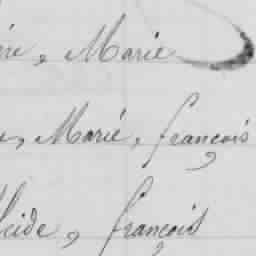 ère, Marie
, Marie, françois
lcide, françois